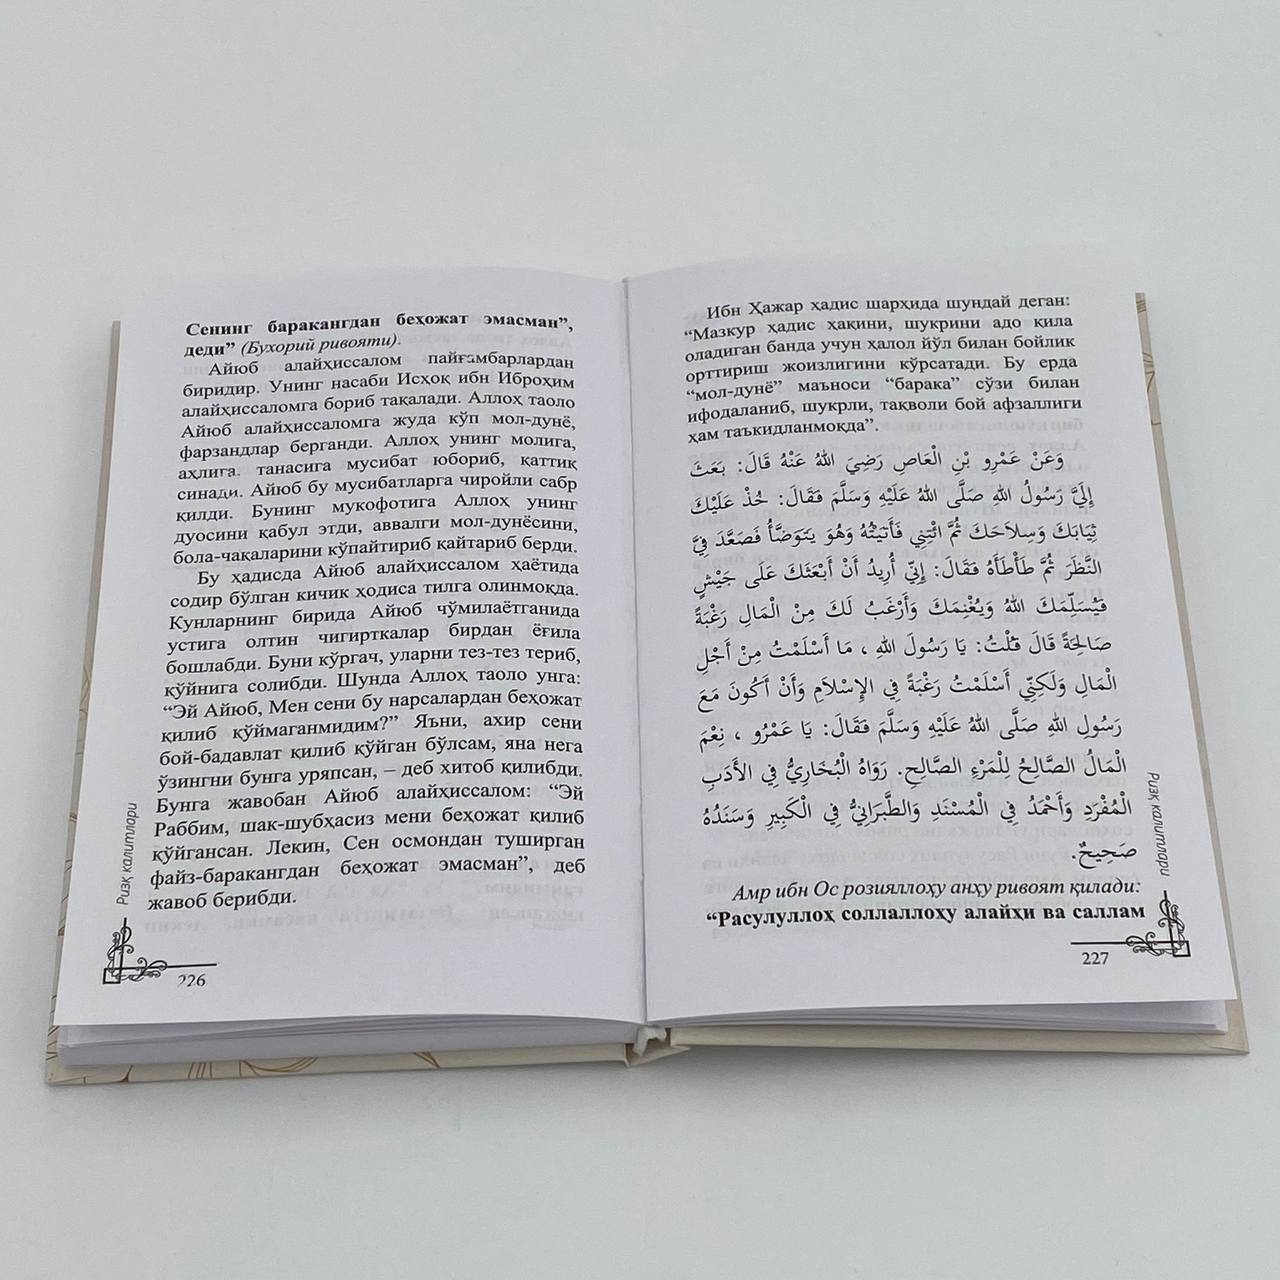 Сенинг баракангдан беҳожат эмасман”,
деди” (Бухорий ривояти).
Айюб алайҳиссалом пайғамбарлардан
биридир. Унинг насаби Исҳоқ ибн Иброҳим
алайҳиссаломга бориб тақалади. Аллоҳ таоло
Айюб алайҳиссаломга жуда кўп мол-дунё,
фарзандлар берганди. Аллоҳ унинг молига,
аҳлига, танасига мусибат юбориб, қаттиқ
синади. Айюб бу мусибатларга чиройли сабр
қилди. Бунинг мукофотига Аллоҳ унинг
дуосини қабул этди, аввалги мол-дунёсини,
бола-чақаларини кўпайтириб қайтариб берди.
Бу ҳадисда Айюб алайҳиссалом ҳаётида
содир бўлган кичик ҳодиса тилга олинмоқда.
Кунларнинг бирида Айюб чўмилаётганида
устига олтин чигирткалар бирдан ёғила
бошлабди. Буни кўргач, уларни тез-тез териб,
қўйнига солибди. Шунда Аллоҳ таоло унга:
“Эй Айюб, Мен сени бу нарсалардан беҳожат
қилиб қўймаганмидим?” Яъни, ахир сени
бой-бадавлат қилиб қўйган бўлсам, яна нега
ўзингни бунга уряпсан, – деб хитоб қилибди.
Бунга жавобан Айюб алайҳиссалом: “Эй
Раббим, шак-шубҳасиз мени беҳожат қилиб
қўйгансан. Лекин, Сен осмондан туширган
файз-баракангдан беҳожат эмасман”, деб
жавоб берибди.
Ризқ калитлари
226
Ибн Ҳажар ҳадис шарҳида шундай деган:
“Мазкур ҳадис ҳақини, шукрини адо қила
оладиган банда учун ҳалол йўл билан бойлик
орттириш жоизлигини кўрсатади. Бу ерда
“мол-дунё” маъноси “барака” сўзи билан
ифодаланиб, шукрли, тақволи бой афзаллиги
ҳам таъкидланмоқда”.
وَعَنْ عَمْرِو بْنِ الْعَاصِ رَضِيَ اللهُ عَنْهُ قَالَ: بَعَثَ
إِلَيَّ رَسُولُ اللهِ صَلَّى اللهُ عَلَيْهِ وَسَلَّمَ فَقَالَ: خُذْ عَلَيْكَ
ثِيَابَكَ وَسِلَاحَكَ ثُمَّ ائْتِنِي فَأَتَيْتُهُ وَهُوَ يَتَوَضَّأُ فَصَعَّدَ فِيَّ
النَّظَرَ ثُمَّ طَأْطَأَهُ فَقَالَ: إِنِّي أُرِيدُ أَنْ أَبْعَثَكَ عَلَى جَيْشٍ
فَيُسَلِّمَكَ اللهُ وَيُغْنِمَكَ وَأَرْغَبُ لَكَ مِنْ الْمَالِ رَغْبَةً
صَالِحَةً قَالَ قُلْتُ: يَا رَسُولَ اللهِ ، مَا أَسْلَمْتُ مِنْ أَجْلِ
الْمَالِ وَلَكِنِّي أَسْلَمْتُ رَغْبَةً فِي الإِسْلاَمِ وَأَنْ أَكُونَ مَعَ
رَسُولِ اللهِ صَلَّى اللهُ عَلَيْهِ وَسَلَّمَ فَقَالَ: يَا عَمْرُو ، نِعْمَ
الْمَالُ الصَّالِحُ لِلْمَرْءِ الصَّالِحِ. رَوَاهُ الْبُخَارِيُّ فِي الأَدَبِ
الْمُفْرَدِ وَأَحْمَدُ فِي الْمُسْنَدِ وَالطَّبَرَانِيُّ فِي الْكَبِيرِ وَسَنَدُهُ
صَحِيحٌ.
Амр ибн Ос розияллоҳу анҳу ривоят қилади:
“Расулуллоҳ соллаллоҳу алайҳи ва саллам
Ризқ калитлари
227